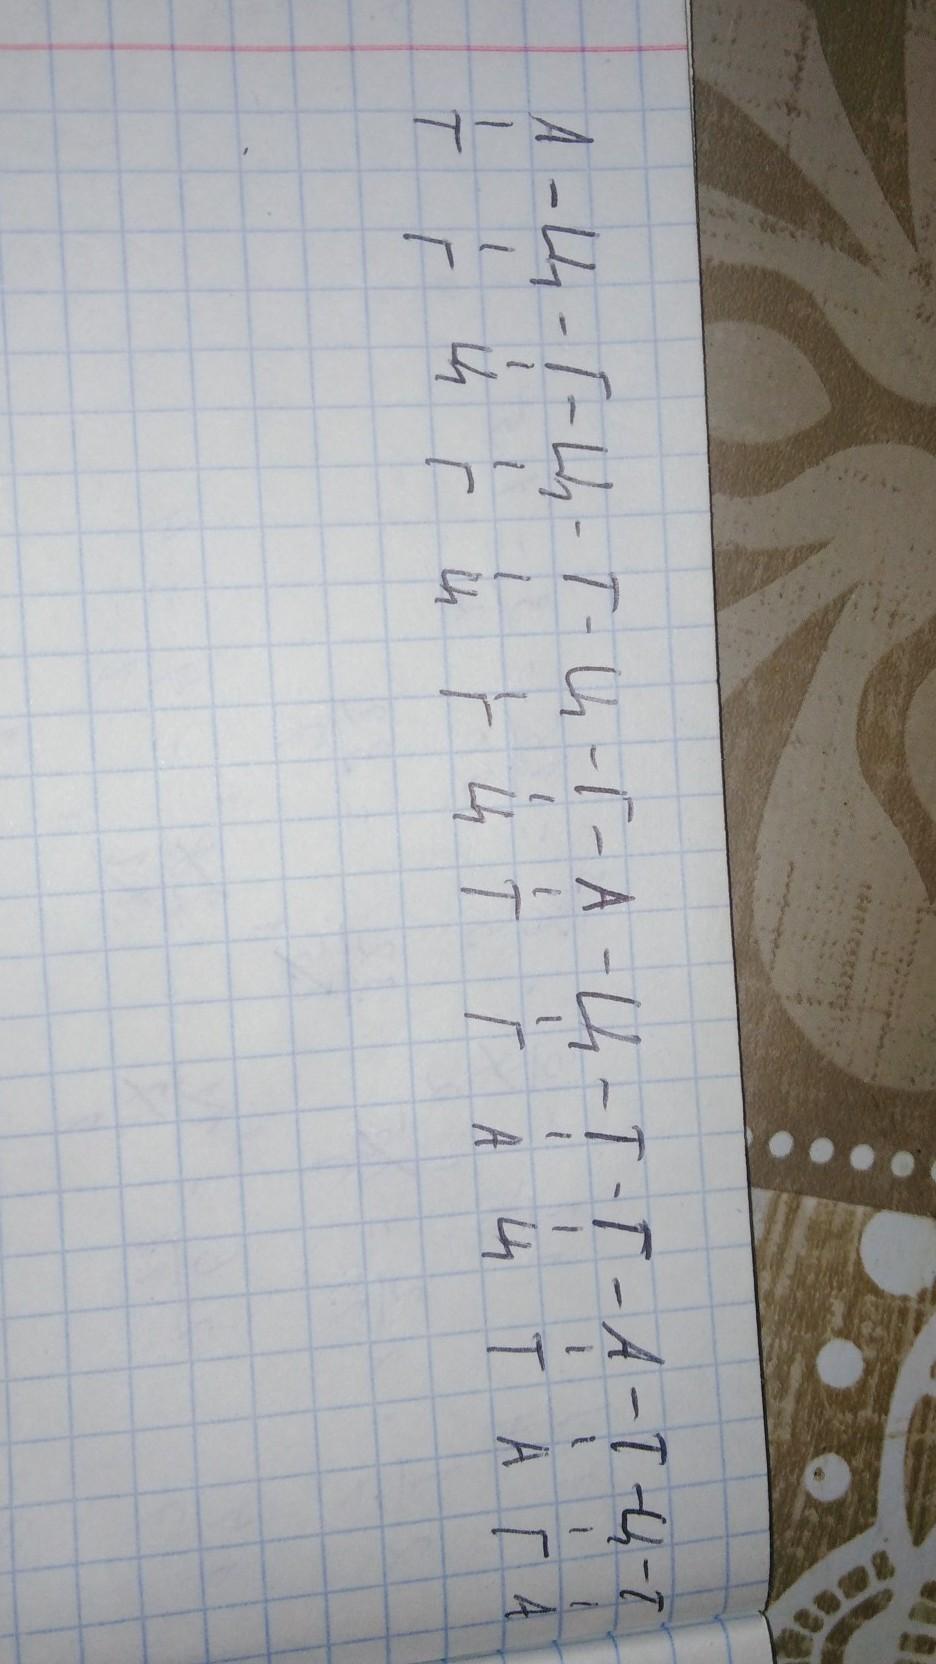 А - Ц - Г - Ц - Т - Ц - Г - А - Ц - Т - Т - А - Т - Ц - Т
Т Г Ц Г Ц Г Ц Т Г А Ц Т А Г А